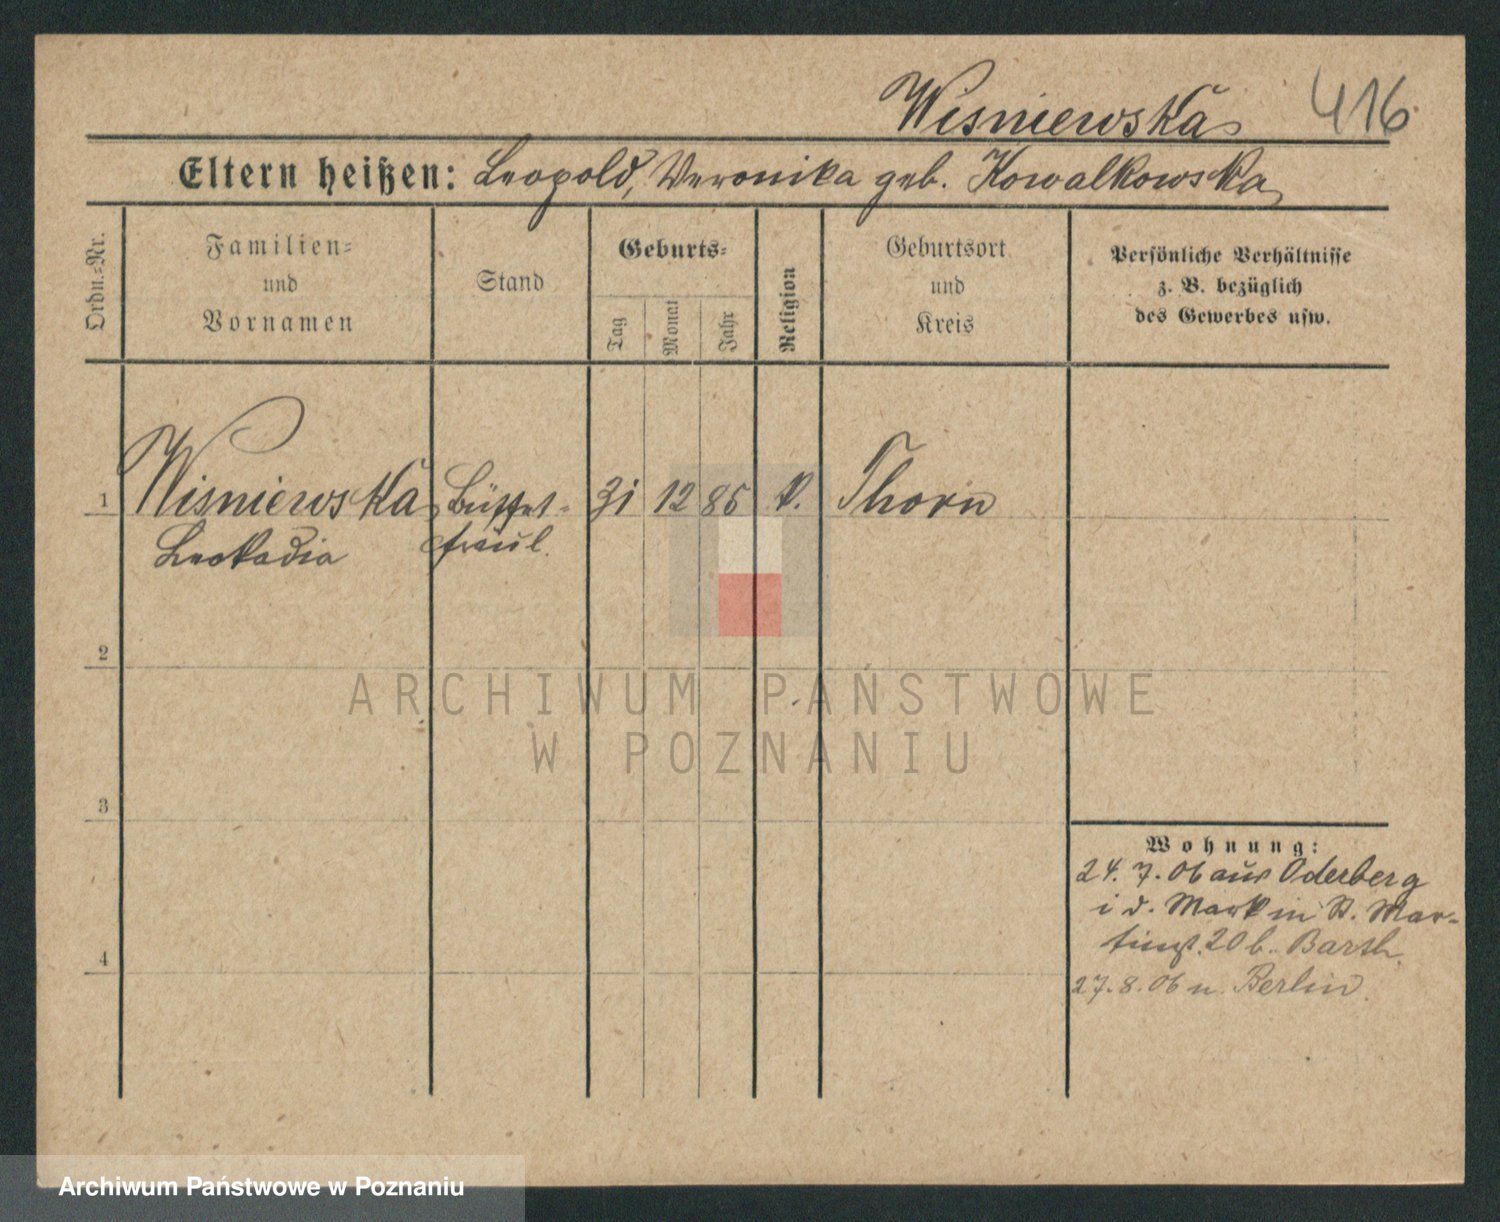 Wisniewska 416
Eltern heißen: Leopold, Veronika geb. Kowalkowska
Ordn.=Nr.
Familien=
und
Vornamen
Stand
Geburts=
Tag
Monat
Jahr
Religion
Geburtsort
und
Kreis
Persönliche Verhältnisse
z. B. bezüglich
des Gewerbes usw.
1 Wisniewska Büffet= 31 12 85 k. Thorn
Leokadia fräul.
2
3
4
Wohnung:
24. 7. 06 aus Oderberg
i d. Mark in St. Mar-
tinst. 20 b. Barth.
27. 8. 06 n. Berlin.
ARCHIWUM PAŃSTWOWE
W POZNANIU
Archiwum Państwowe w Poznaniu